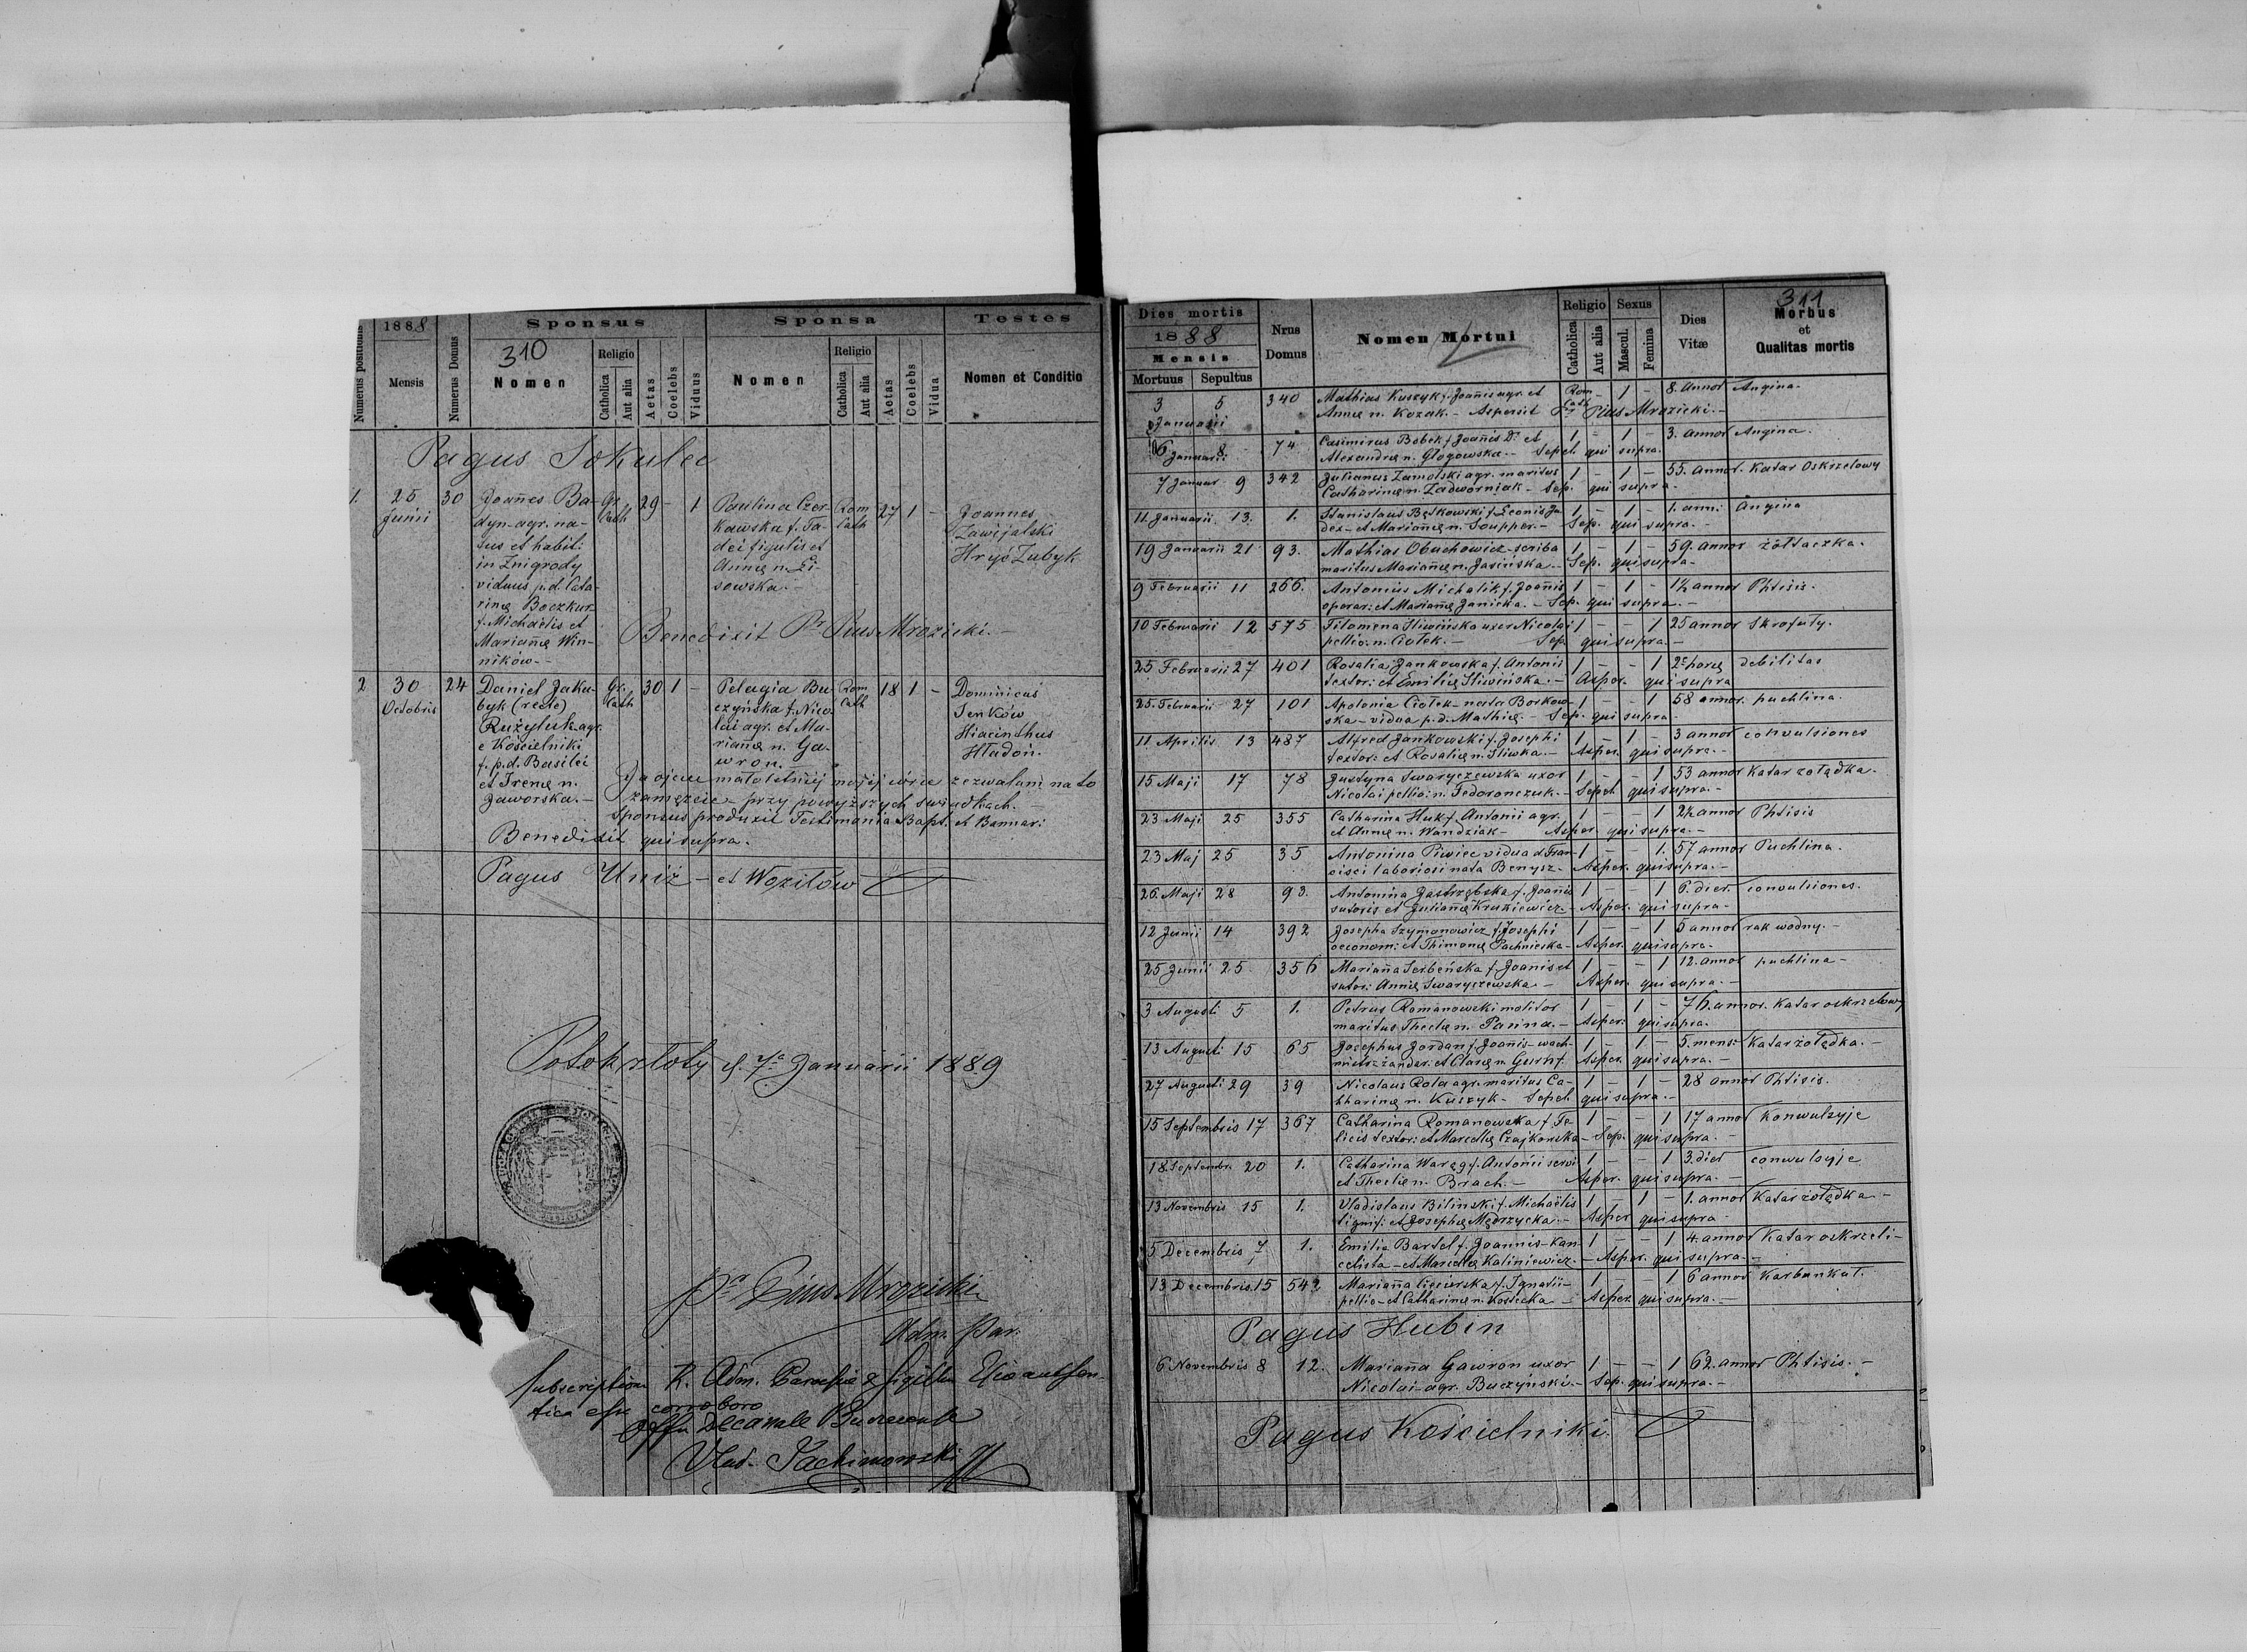 Numerus positionis
1888
Mensis
Numerus Domus
Sponsus
310
Nomen
Religio
Catholica
Aut alia
Aetas
Coelebs
Viduus
Sponsa
Nomen
Religio
Catholica
Aut alia
Aetas
Coelebs
Vidua
Testes
Nomen et Conditio
Pagus Sokulec
1. 25 Junii 30 Joannes Ba- Gr. Cath 29 - 1 Paulina Czer- Rom Cath 27 1 - Joannes
dyn - agr. na- kawska f. Ta- Zawijalski
tus et habit: dei figulis et Hryc Zubyk
in Żnigrody Annæ n. Li-
viduus p.d. Cata- sowska.
rinæ Boczkur
f. Michaelis et
Mariannæ Win-
ników. -
Benedixit Pr Pius Mrozicki. -
2 30 Octobris 24 Daniel Jaku- Gr. Cath 30 1 - Pelagia Bu- Rom Cath 18 1 - Dominicus
byk (recte) czyńska f. Nico- Jenków
Rużyluk agr. lai agr. et Ma- Hiacinthus
e Kościelniki riannæ n. Ga- Hładoń.
f. p.d. Basilii wron. -
et Irenæ n.
Jaworska. -
Ja ojciec małoletniej mojej córce zezwalam na to
zamęzcie - przy powyższych swiadkach. -
Sponsus produxit Testimonia Bapt. et Bannor:
Benedixit qui supra.
Pagus Uniż - et Wozilów
Potok złoty d. 7a Januarii 1889
Pr Pius Mrozicki
Adm. Par.
Subscriptione R. Adm. Parochiæ & sigillum authen-
tica esse corroboro
Offic. Decanale
Vlad.
Dies mortis
1888
Mensis
Mortuus Sepultus
Nrus Domus
Nomen Mortui
Religio
Catholica
Aut alia
Sexus
Mascul.
Femina
Dies Vitæ
311
Morbus
et
Qualitas mortis
3 5 Januarii 340 Mathias Kuszyk f. Joannis agr. et Rom Cath - 1 - 8. annor Angina -
Annæ n. Kozak. - Aspersit Pr Pius Mrozicki. -
6 Januarii 8 74 Casimirus Bobek f. Joannis D. et 1 - 1 - 3. annor Angina.
Alexandræ n. Głogowska. - Sepel. qui supra.
7 Januar 9 342 Julianus Zamolski agr. maritus 1 - 1 - 55. annor. Katar oskrzelowy
Catharinæ n. Zadworniak - Sep. qui supra -
11 Januarii 13. 1. Stanislaus Bętkowski f. Leonis Ju- 1 - 1 - 1. anni Angina
dex - et Mariannæ n. Soupper. - Sep. qui supra. -
19 Januarii 21 93. Mathias Obuchowicz - scriba 1 - 1 - 59. annor żółtaczka.
maritus Mariannæ n. Jasińska - Sep. qui supra -
9 Februarii 11 266. Antonius Michalik f. Joannis 1 - 1 - 1½ annor Phtisis.
operar: et Mariannæ Janicka. - Sep. qui supra. -
10 Februarii 12 575 Filomena Śliwińska uxor Nicolai 1 - - 1 25 annor Skrofuły.
pellio. n. Ciołek. - Sep. qui supra. -
25. Februarii 27 401 Rosalia Jankowska f. Antonii 1 - - 1 2 horæ debilitas
textor: et Emiliæ Śliwińska. - Asper. qui supra
25. Februarii - 27 101 Apolonia Ciołek - nata Borkow- 1 - - 1 58 annor. puchlina.
ska - vidua p.d. Mathiæ. - Sep. qui supra -
11 Aprilis 13 487 Alfred Jankowski f. Josephi 1 - 1 - 3 annor convulsiones
textor: et Rosaliæ n. Śliwka - Asper. qui supra. -
15 Maji 17 78 Justyna Swaryczewska uxor 1 - - 1 53 annor Katar żołądka.
Nicolai pellio: n. Fedoronczuk. - Sepel. qui supra. -
23 Maji 25 355 Catharina Huk f. Antonii agr. 1 - - 1 2½ annor Phtisis
et Annæ n. Wandziak - Asper. qui supra. -
23 Maj 25 35 Antonina Piwiec vidua d. Fran- 1 - - 1. 57 annor Puchlina.
cisci laboriosi nata Benysz. - Asper. qui supra. -
26. Maji 28 93. Antonina Jastrzębska f. Joannis 1 - - 1 6. dier. convulsiones.
sutoris et Juliannæ Kruszewicz. - Asper. qui supra -
12 Junii 14 392 Josepha Szymonowicz f. Josephi 1 - - 1 5 annor rak wodny. -
oeconom: et Thimonæ Pachnieska - Asper. qui supra. -
25 Junii 25 356 Marianna Serbeńska f. Joannis et 1 - - 1 12. annor puchlina -
sutor: Annæ Swaryczewska - Asper. qui supra. -
3 Augusti 5 1. Petrus Romanowski molitor 1 - 1 - 76. annor. Katar oskrzelowy
maritus Theclæ n. Panna. - Asper: qui supra.
13 Augusti 15 65 Josephus Jordan f. Joannis - wach- 1 - 1 - 5. mens: Katar żołądka. -
mistrz żandar. et Claræ n. Asper. qui supra. -
27 Augusti 29 39 Nicolaus Rola agr. maritus Ca- 1 - 1 - 28 annor Phtisis.
tharinæ n. Kuszyk - Sepel. qui supra. -
15 Septembris 17 367 Catharina Romanowska f. Fe- 1 - - 1 17 annor Konwulzyje
licis textor: et Marcellæ Czajkowska - Sep. qui supra. -
18. Septembr. 20 1. Catharina Waręg f. Antonii servi 1 - - 1 3. dier conwulzyje
et Theclæ n. Brach. - Asper. qui supra. -
13 Novembris 15 1. Vladislaus Bilinski f. Michaëlis 1 - 1 - 1. annor Katar żołądka -
lignif: et Josephæ Mędrzycka. - Asper qui supra -
5 Decembris 7 1. Emilia Bartel f. Joannis - Kan- 1 - - 1 4. annor Katar oskrzeli -
celista - et Marcellæ Kaliniewicz. - Asper. qui supra. -
13 Decembris 15 542 Marianna f. Ignatii - 1 - - 1 6 annor Karbunkuł.
pellio - et Catharinæ n. Kostecka - Asper. qui supra. -
Pagus Hubin
6 Novembris 8 12. Marianna Gawron uxor 1 - - 1 62. annor Phtisis. -
Nicolai - agr. Buczyński. - Sep. qui supra. -
Pagus Kościelniki.